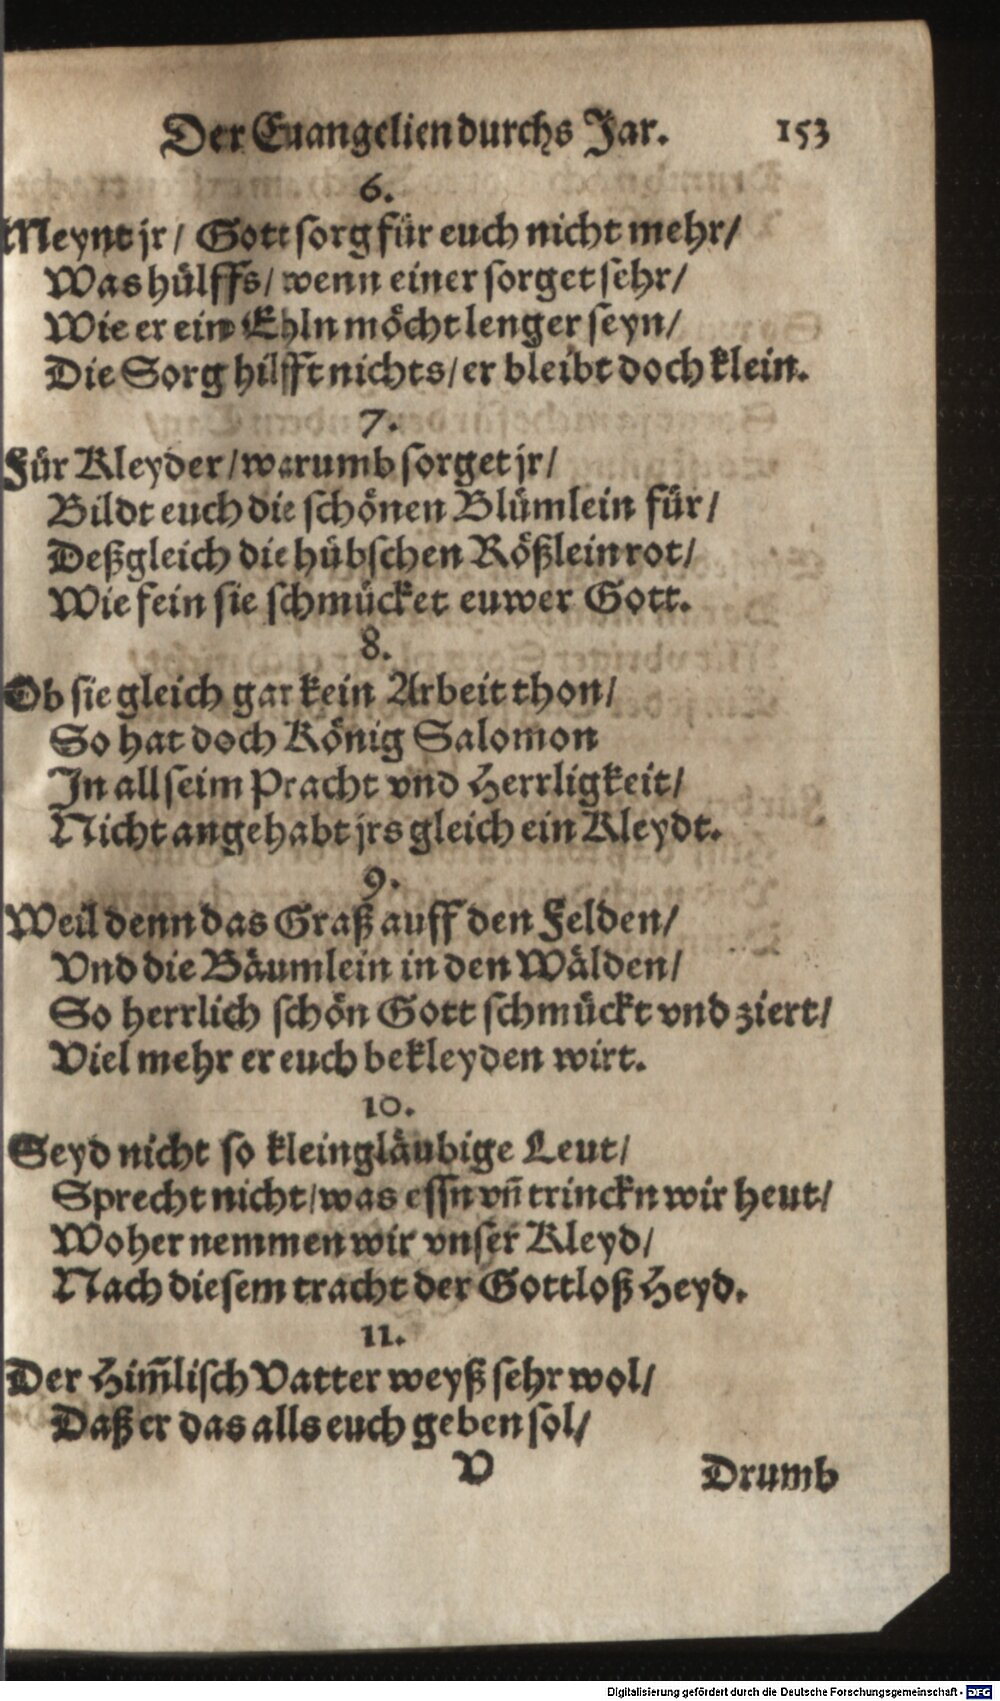 Der Euangelien durchs Jar. 153
6.
Meynt jr / Gott sorg für euch nicht mehr /
Was hülffs / wenn einer sorget sehr /
Wie er ein Ehln möcht lenger seyn /
Die Sorg hilfft nichts / er bleibt doch klein.
7.
Für Kleyder / warumb sorget jr /
Bildt euch die schönen Blümlein für /
Deßgleich die hübschen Rößlein rot /
Wie fein sie schmücket euwer Gott.
8.
Ob sie gleich gar kein Arbeit thon /
So hat doch König Salomon
In all seim Pracht vnd Herrligkeit /
Nicht angehabt jrs gleich ein Kleydt.
9.
Weil denn das Graß auff den Felden /
Vnd die Bäumlein in den Wälden /
So herrlich schön Gott schmückt vnd ziert /
Viel mehr er euch bekleyden wirt.
10.
Seyd nicht so kleingläubige Leut /
Sprecht nicht / was essn vñ trinckn wir heut /
Woher nemmen wir vnser Kleyd /
Nach diesem tracht der Gottloß Heyd.
11.
Der Him̃lisch Vatter weyß sehr wol /
Daß er das alls euch geben sol /
V Drumb
Digitalisierung gefördert durch die Deutsche Forschungsgemeinschaft - DFG